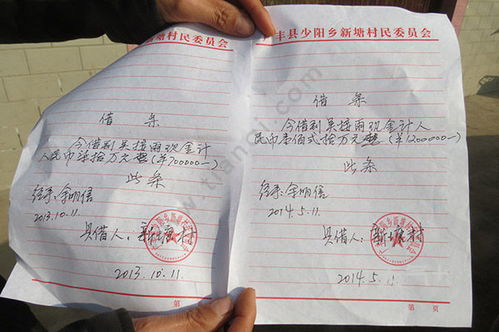 新塘村民委员会
借条
今借到吴接雨现金计
人民币柒拾万元整(￥700000—)
此条
经手:余明信
2013.10.11.
具借人:新塘村
2013.10.11
第
丰县少阳乡新塘村民委员会
借条
今借到吴接雨现金计人
民币壹佰贰拾万元整(￥1200000—)
此条
经手:余明信
2014.5.11.
具借人:新塘村
2014.5.11
第 页